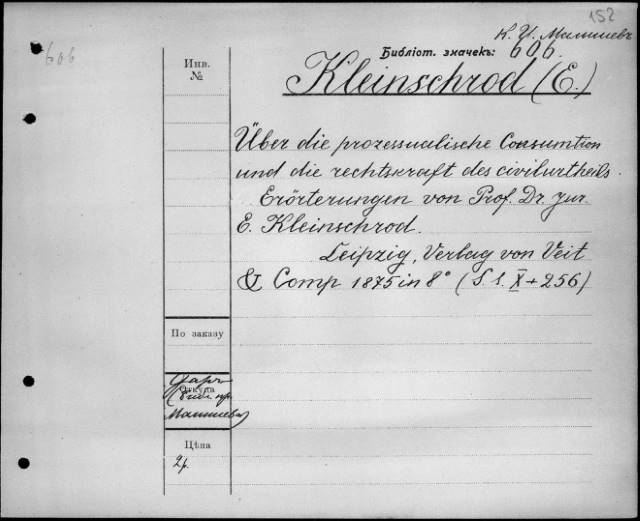 152
К. И. Малышевъ
606
Библіот. значекъ: 606.
Инв.
№
Kleinschrod (E.)
Über die prozessualische Consumtion
und die rechtskraft des civilurtheils.
Erörterungen von Prof. Dr. jur.
E. Kleinschrod.
Leipzig, Verlag von Veit
& Comp 1875 in 8° (S. s. X + 256)
По заказу
Даръ
Откуда
Малышева)
Цѣна
2 р.